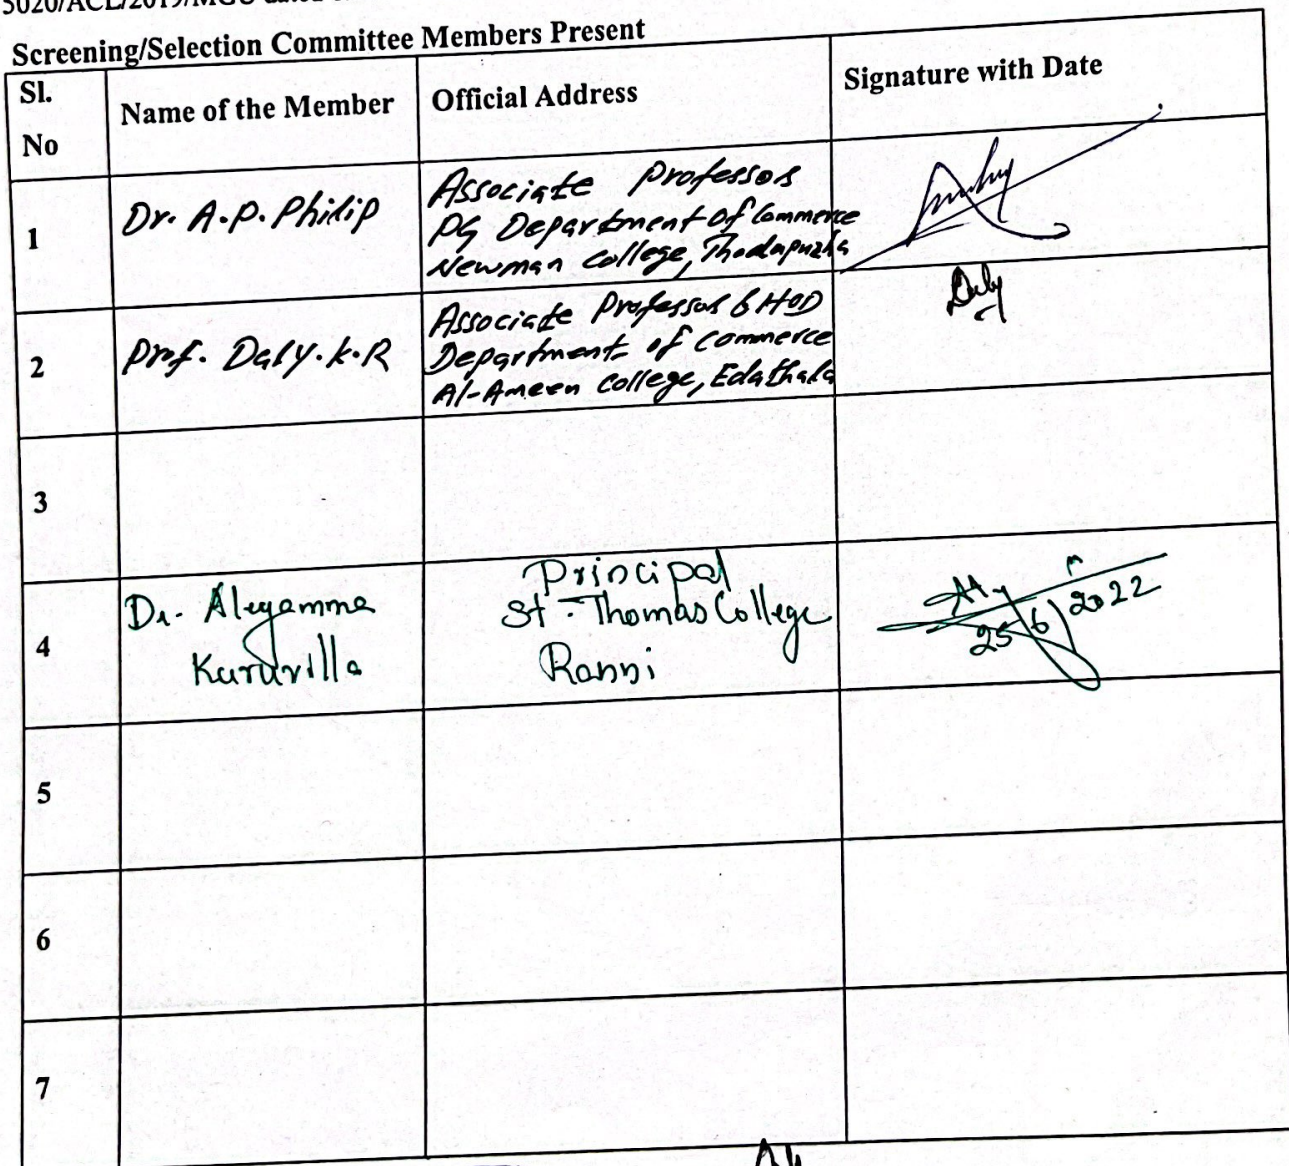 5020/ACL/2019/MGU dated
Screening/Selection Committee Members Present
Sl. No Name of the Member Official Address Signature with Date
1 Dr. A.P. Philip Associate Professor
PG Department of Commerce
Newman College, Thodupuzha
2 Prof. Daly.K.R Associate Professor & HOD
Department of Commerce
Al-Ameen College, Edathala
Daly
3
4 Dr. Aleyamma
Kuruvilla
Principal
St. Thomas College
Ranni
25/6/2022
5
6
7